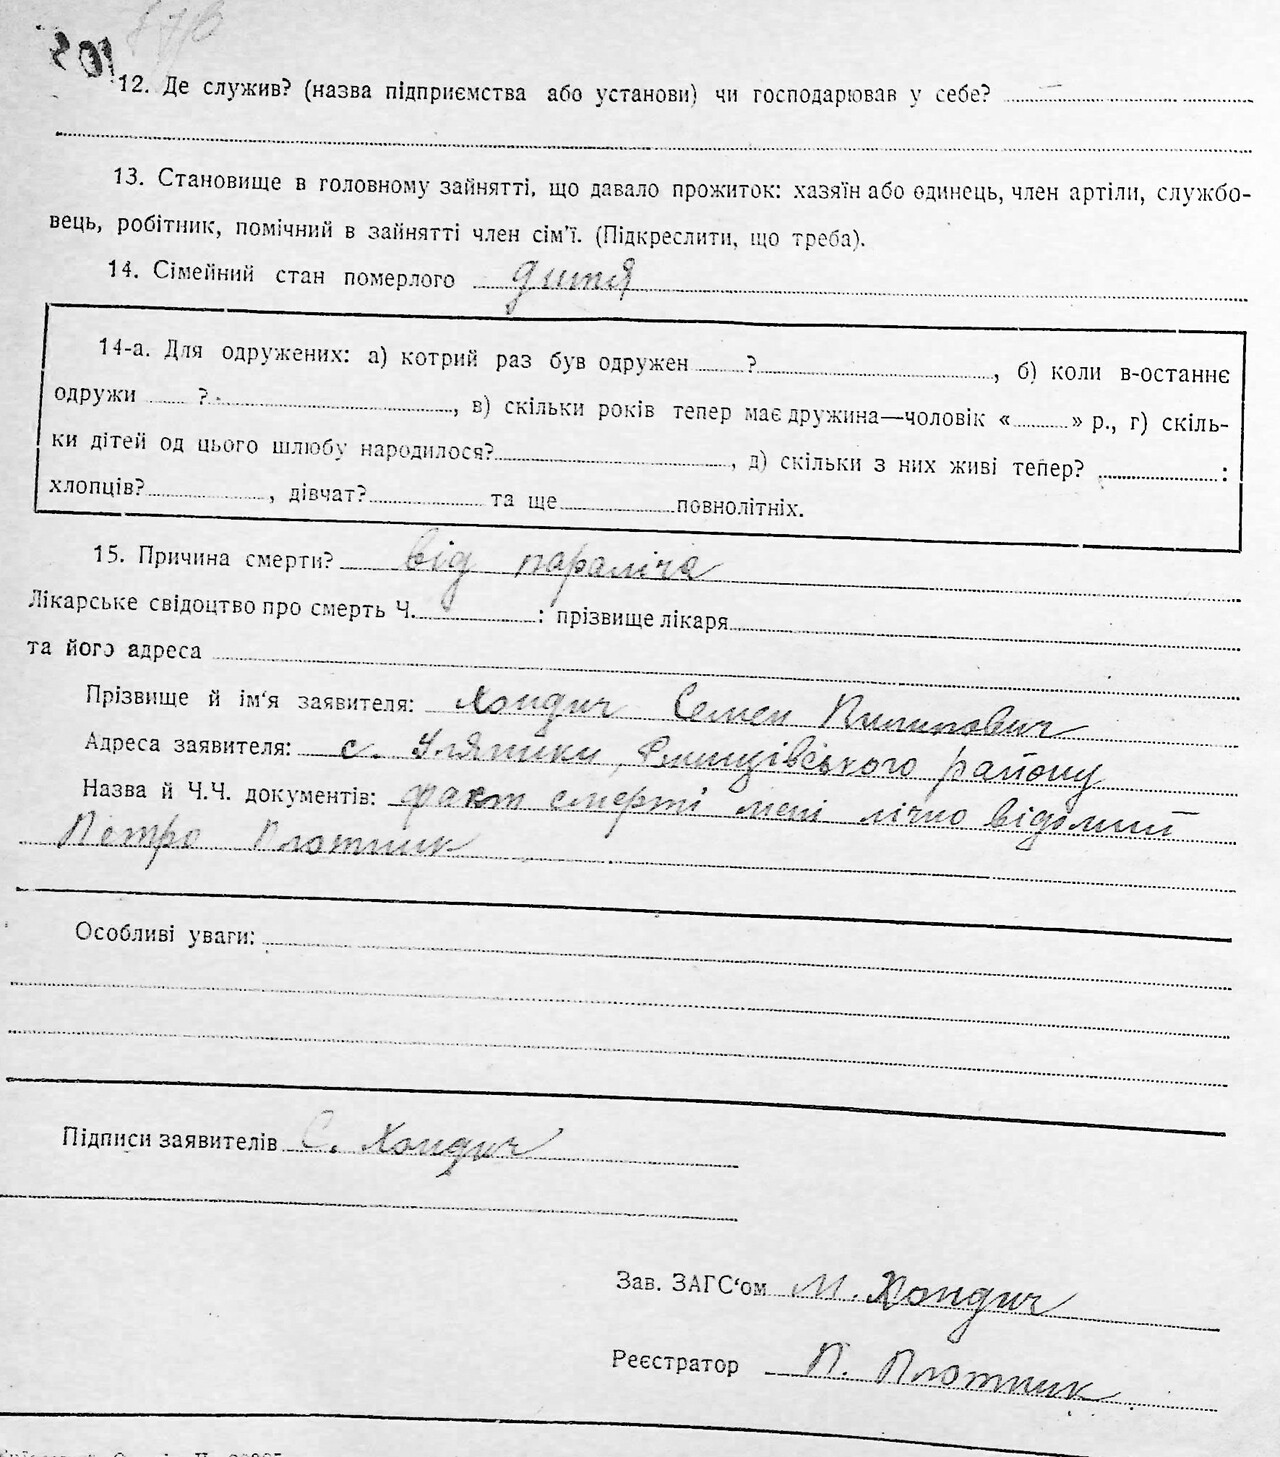 501
12. Де служив? (назва підприємства або установи) чи господарював у себе?
13. Становище в головному зайнятті, що давало прожиток: хазяїн або одинець, член артіли, службо-
вець, робітник, помічний в зайнятті член сім'ї. (Підкреслити, що треба).
14. Сімейний стан померлого дитя
14-а. Для одружених: а) котрий раз був одружен ?, б) коли в-останнє
одружи ?, в) скільки років тепер має дружина—чоловік « » р., г) скіль-
ки дітей од цього шлюбу народилося?, д) скільки з них живі тепер? :
хлопців?, дівчат? та ще повнолітніх.
15. Причина смерти? від параліча
Лікарське свідоцтво про смерть Ч. : прізвище лікаря
та його адреса
Прізвище й ім'я заявителя: Хондич Семен Пилипович
Адреса заявителя: с. Уляники, району
Назва й Ч.Ч. документів: факт смерті мені лічно відомий
Петро Плотник
Особливі уваги:
Підписи заявителів С. Хондич
Зав. ЗАГС'ом М. Хондич
Реєстратор П. Плотник